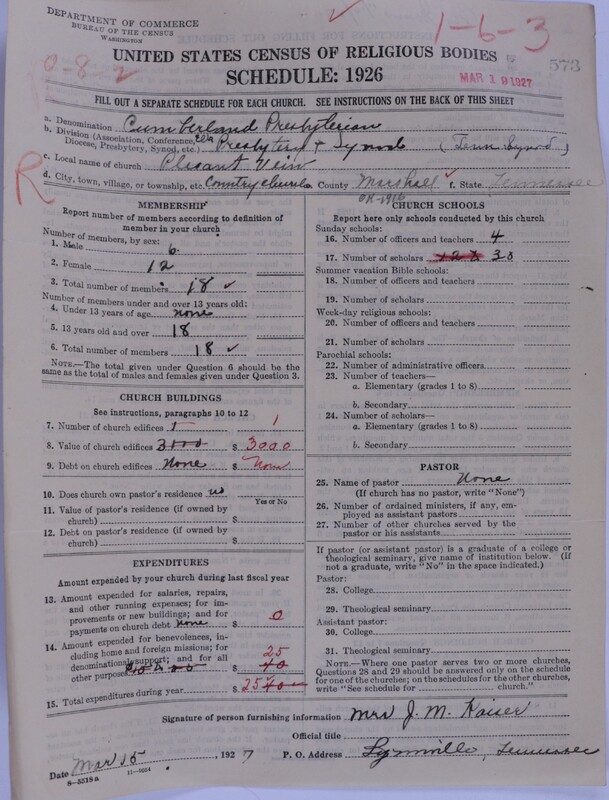 DEPARTMENT OF COMMERCE
BUREAU OF THE CENSUS
WASHINGTON
1-6-3
0-8-2
UNITED STATES CENSUS OF RELIGIOUS BODIES
SCHEDULE: 1926
MAR 19 1927
573
FILL OUT A SEPARATE SCHEDULE FOR EACH CHURCH. SEE INSTRUCTIONS ON THE BACK OF THIS SHEET
a. Denomination Cumberland Presbyterian
b. Division (Association, Conference, Diocese, Presbytery, Synod, etc.) Presbytery & Synod (Tenn Synod)
c. Local name of church Plesant Vein
d. City, town, village, or township, etc. Country church County Marshall f. State Tennessee
R
OK-1916
MEMBERSHIP
Report number of members according to definition of
member in your church
Number of members, by sex:
1. Male 6
2. Female 12
3. Total number of members 18 ✓
Number of members under and over 13 years old:
4. Under 13 years of age none
5. 13 years old and over 18
6. Total number of members 18 ✓
NOTE.—The total given under Question 6 should be the
same as the total of males and females given under Question 3.
CHURCH BUILDINGS
See instructions, paragraphs 10 to 12
7. Number of church edifices 1 1
8. Value of church edifices 3100 $ 3000
9. Debt on church edifices None $ None
10. Does church own pastor's residence no
Yes or No
11. Value of pastor's residence (if owned by
church) $
12. Debt on pastor's residence (if owned by
church) $
EXPENDITURES
Amount expended by your church during last fiscal year
13. Amount expended for salaries, repairs,
and other running expenses; for im-
provements or new buildings; and for
payments on church debt none $ 0
14. Amount expended for benevolences, in-
cluding home and foreign missions; for
denominational support; and for all
other purposes $ 40 25
15. Total expenditures during year $ 25
CHURCH SCHOOLS
Report here only schools conducted by this church
Sunday schools:
16. Number of officers and teachers 4
17. Number of scholars 30
Summer vacation Bible schools:
18. Number of officers and teachers
19. Number of scholars
Week-day religious schools:
20. Number of officers and teachers
21. Number of scholars
Parochial schools:
22. Number of administrative officers
23. Number of teachers—
a. Elementary (grades 1 to 8)
b. Secondary
24. Number of scholars—
a. Elementary (grades 1 to 8)
b. Secondary
PASTOR
25. Name of pastor None
(If church has no pastor, write "None")
26. Number of ordained ministers, if any, em-
ployed as assistant pastors
27. Number of other churches served by the
pastor or his assistants
If pastor (or assistant pastor) is a graduate of a college or
theological seminary, give name of institution below. (If
not a graduate, write "No" in the space indicated.)
Pastor:
28. College
29. Theological seminary
Assistant pastor:
30. College
31. Theological seminary
NOTE.—Where one pastor serves two or more churches,
Questions 28 and 29 should be answered only on the schedule
for one of the churches; on the schedules for the other churches,
write "See schedule for church."
Signature of person furnishing information Mrs J. M. Kaiser
Official title
Date Mar 15, 1927 P. O. Address Lynnville, Tennessee
8-5518a 11-9664